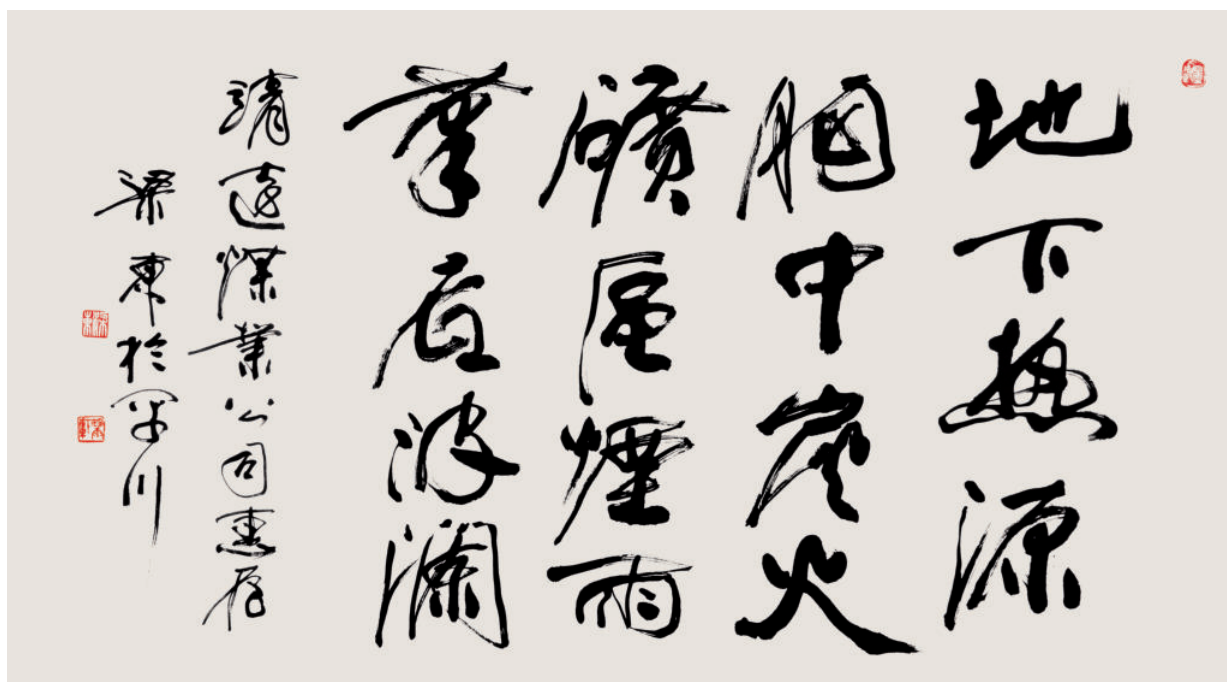 地下熱源
胸中炭火
礦區煙雨
筆底波瀾
靖遠煤業公司惠存
梁東於平川